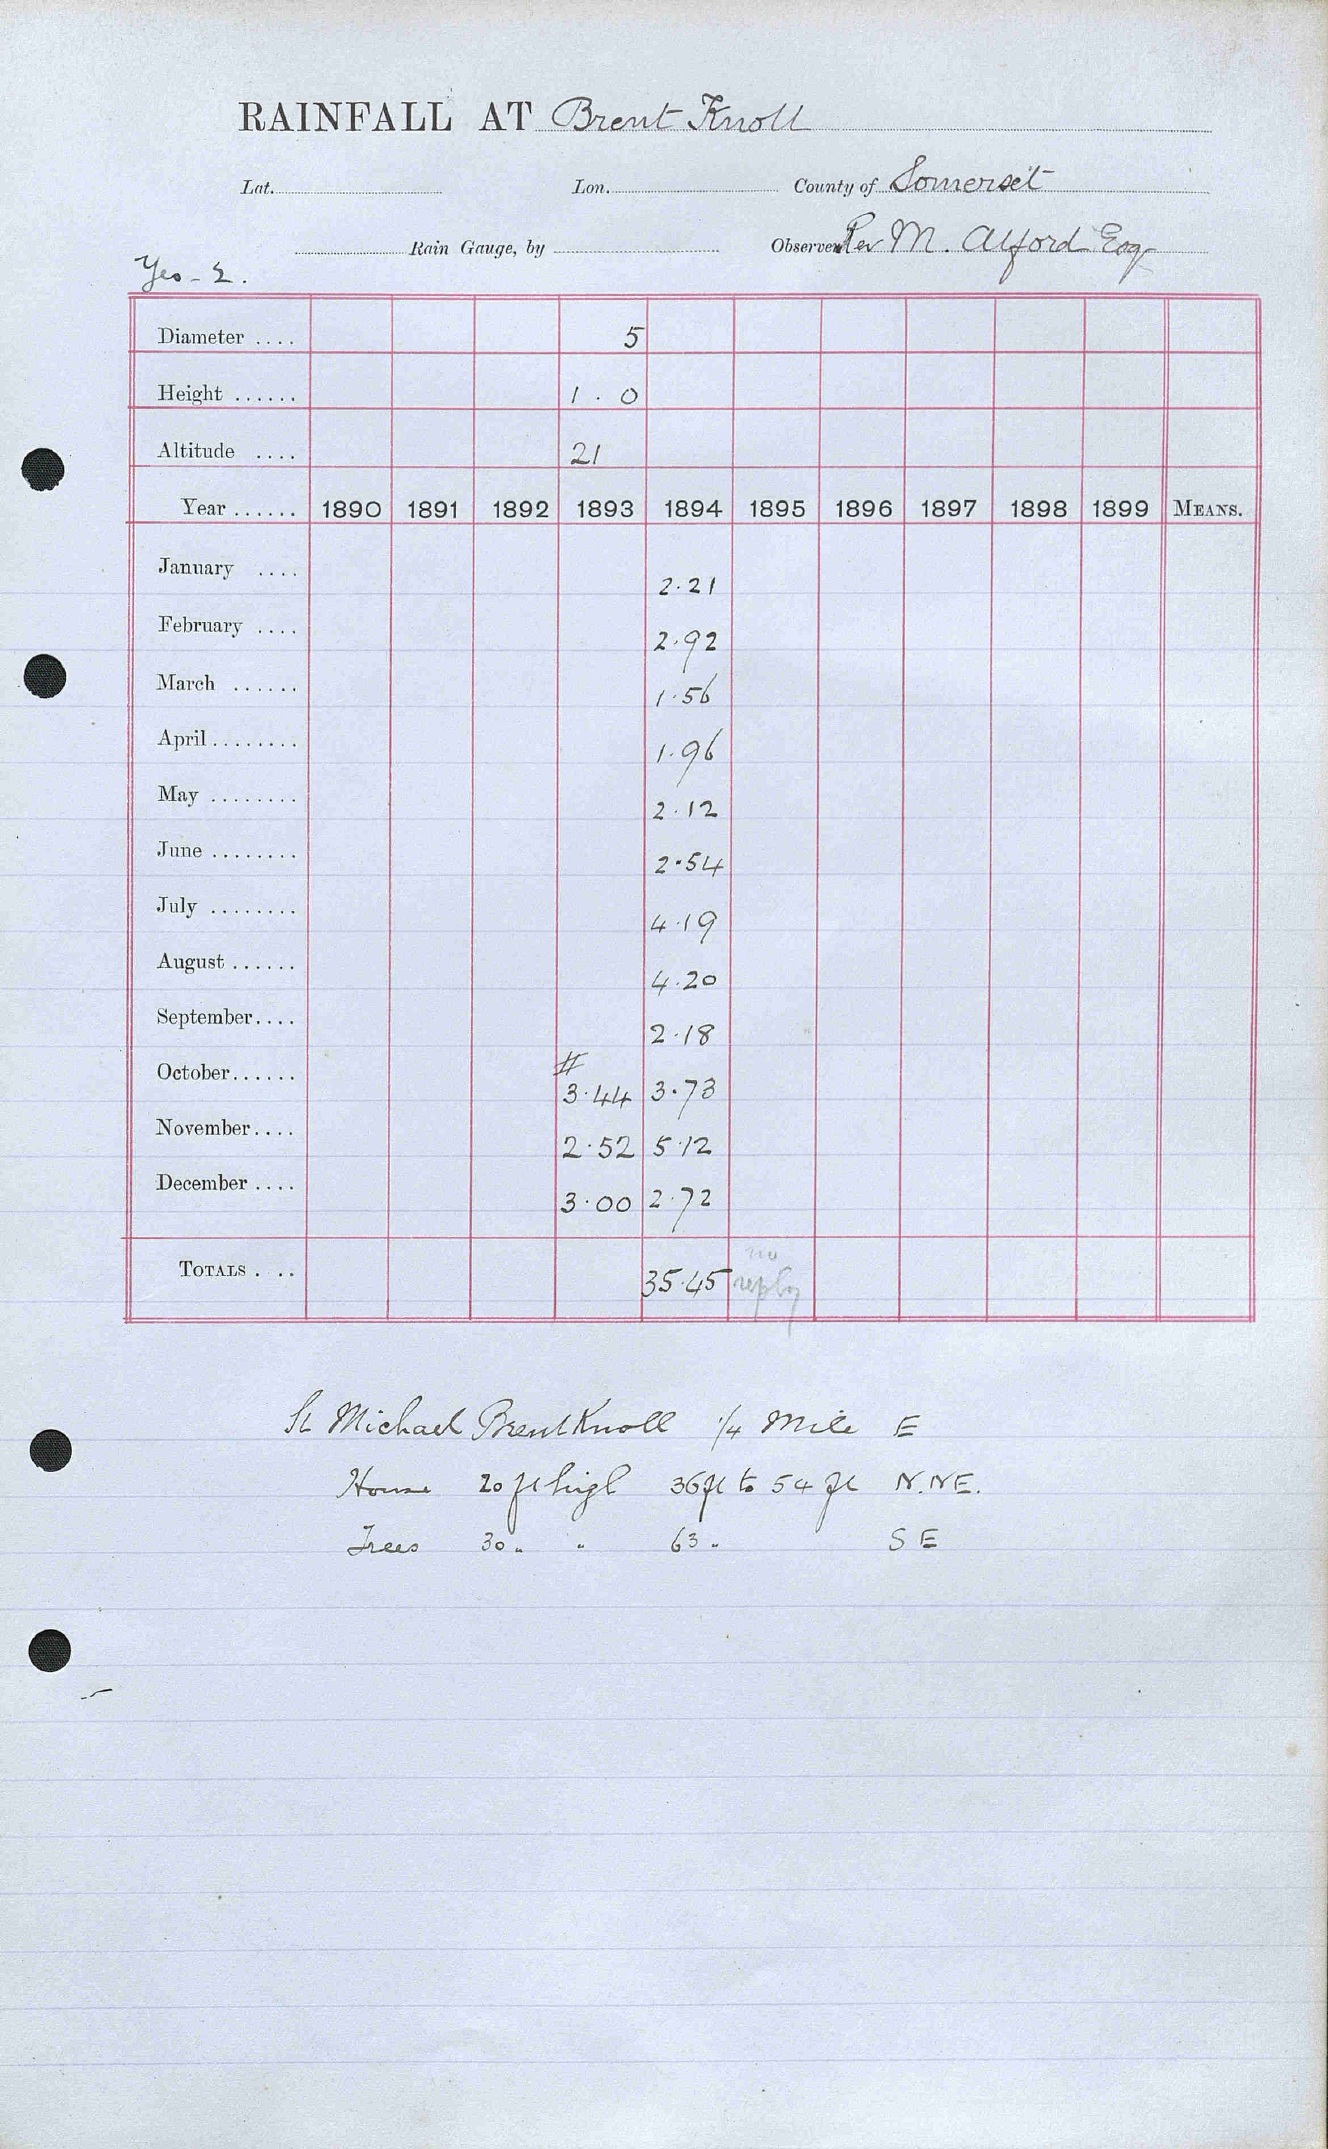 RAINFALL AT Brent Knoll
Lat. Lon. County of Somerset
Rain Gauge, by Observer M. Alford Esq
Diameter .... 5
Height ...... 1 . 0
Altitude .... 21
Year ...... 1890 1891 1892 1893 1894 1895 1896 1897 1898 1899 MEANS.
January .... 2.21
February .... 2.92
March ...... 1.56
April ........ 1.96
May ........ 2.12
June ........ 2.54
July ........ 4.19
August ...... 4.20
September .... 2.18
#
October ...... 3.44 3.73
November .... 2.52 5.12
December .... 3.00 2.72
no
TOTALS . .. 35.45 reply
St Michael Brent Knoll 1/4 Mile E
House 20 ft high 36 ft to 54 ft N.NE.
Trees 30 " " 63 " S E